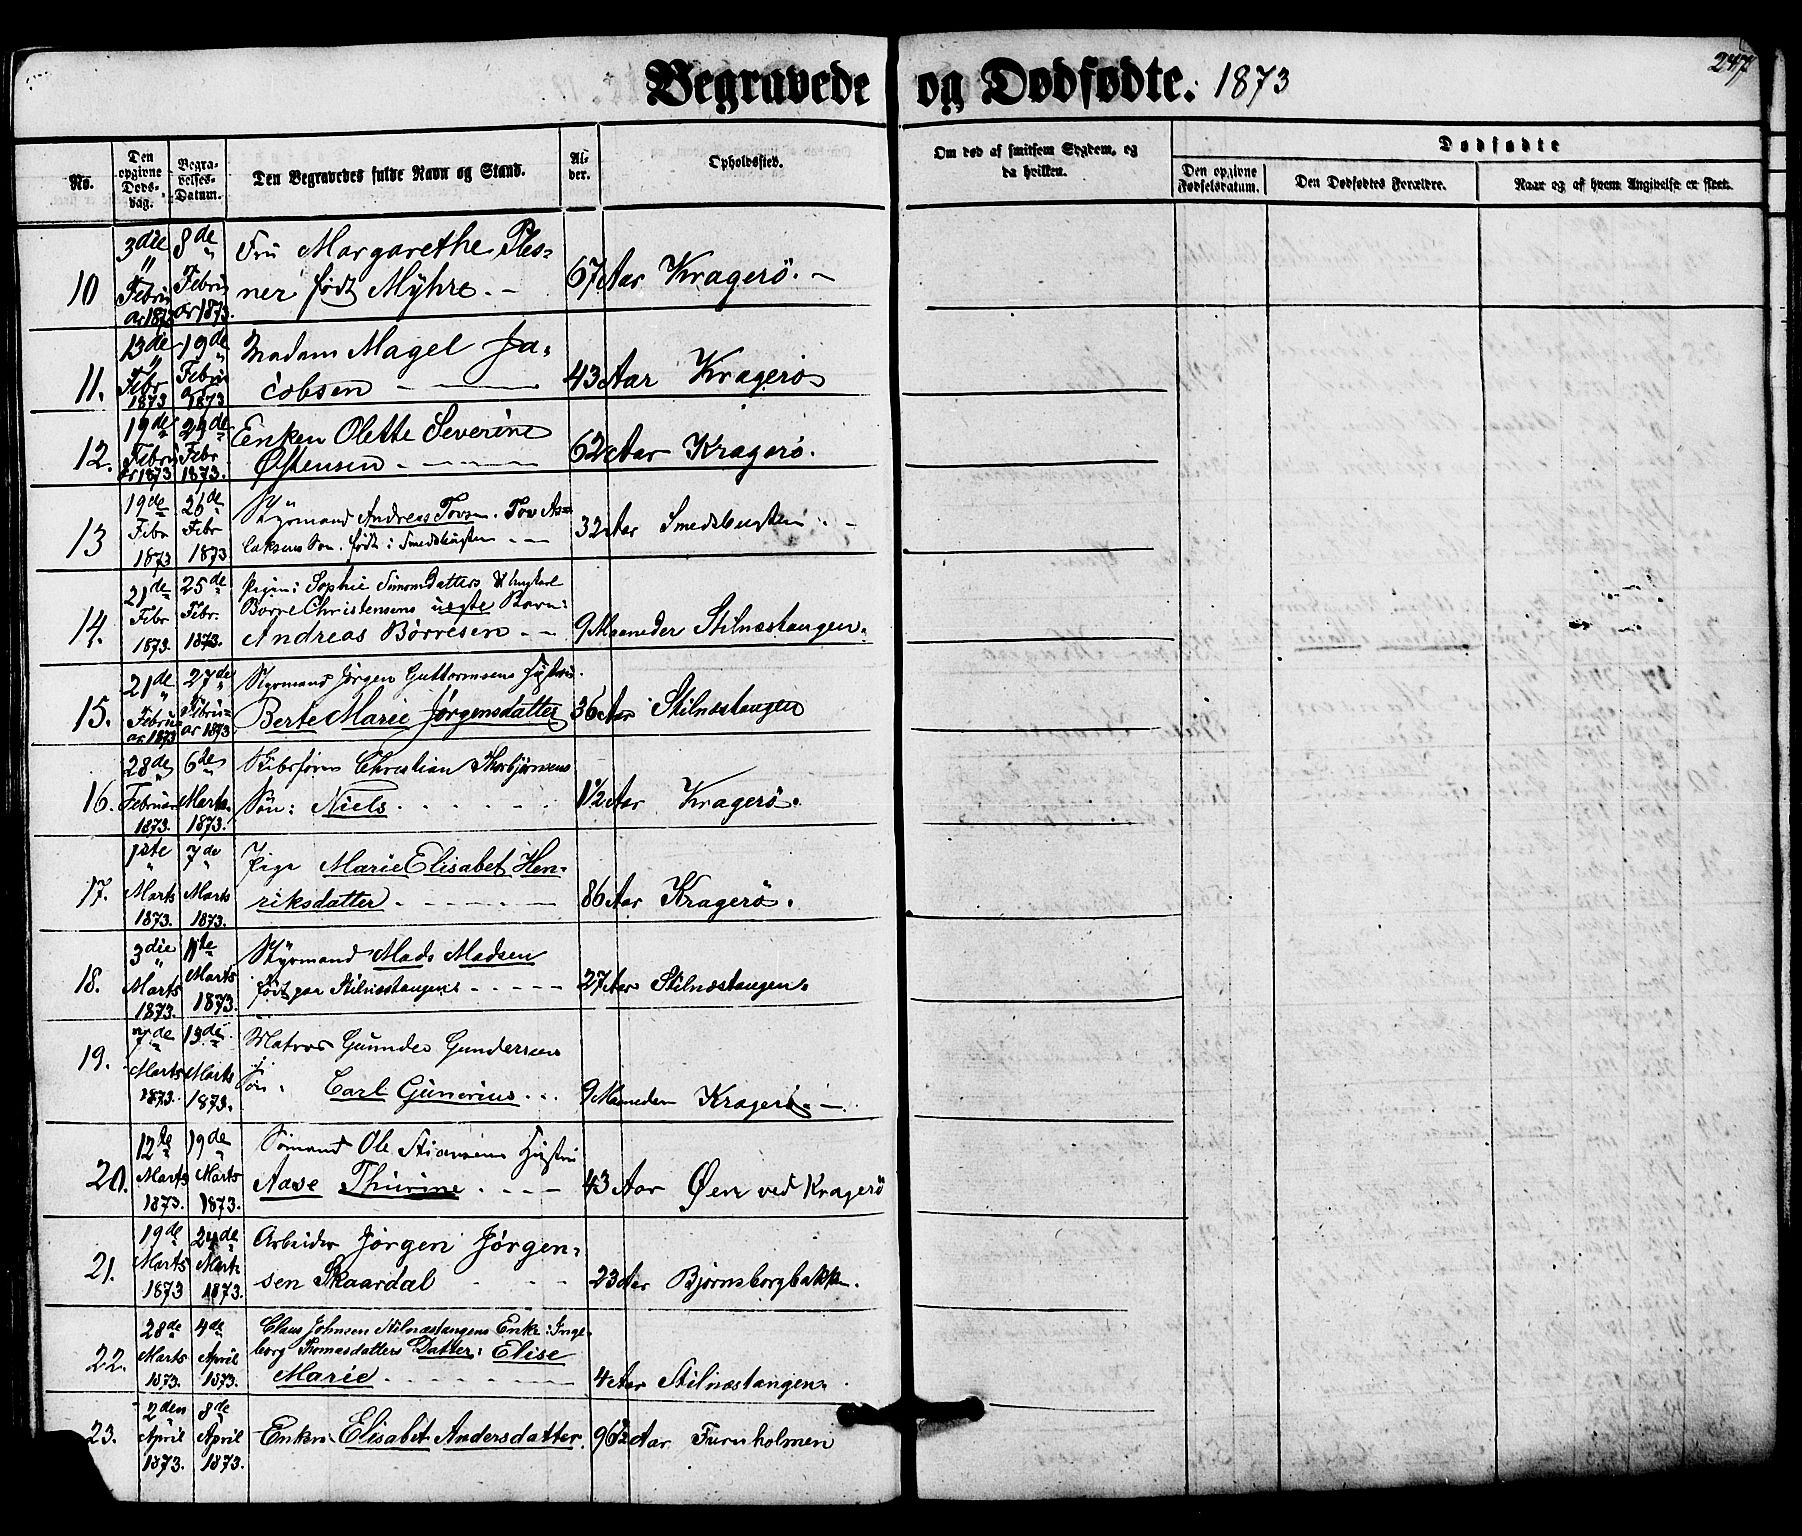 247
Begravede og Dødfødte. 1873
No.
Den opgivne Døds-dag.
Begra-velses-Datum.
Den Begravedes fulde Navn og Stand.
Al-der.
Opholdssted.
Om død af smitsom Sygdom, og da hvilken.
Dødfødte
Den opgivne Fødselsdatum.
Den Dødfødtes Forældre.
Naar og af hvem Angivelse er skeet.
10 3die " Februar 1873 8de " Februar 1873. Fru Margarethe Ples-
ner født Myhre. - 67 Aar Kragerö. -
11. 13de " Febr 1873 19de " Febru 1873 Madam Magel Ja-
cobsen - 43 Aar Kragerö
12. 19de Februar 1873 24de Febr 1873. Enken Olette Severine
Østensen - 62 Aar Kragerö.
13 19de Febr 1873 26de Febr 1873 Styrmand Andreas Tovsen. Tov As-
laksens Søn. født i Smedsbugten - 32 Aar Smedsbugten. -
14. 21de Febr 1873. 25de Febr. 1873. Pigen: Sophie Simonsdatters & Ungkarl
Børre Christensens uægte Barn:
Andreas Börresen - - 9 Maaneder Stilnæstangen.
15. 21de " Februar 1873 27de " Februar 1873 Styrmand Jörgen Guttormsens Hustru.
Berte Marie Jørgensdatter 36 Aar Stilnæstangen
16. 28de " Februar 1873. 6de " Marts 1873. Skibsförer Christian Thorbjørnsens
Sön: Niels. 1½ Aar Kragerö.
17. 1ste " Marts 1873. 7de " Marts 1873. Pige Marie Elisabet Hen-
riksdatter - 86 Aar Kragerö.
18. 3die " Marts 1873. 11te Marts 1873. Styrmand Mads Madsen
født paa Stilnæstangen - 27 Aar Stilnæstangen.
19. 7de Marts 1873. 13de Marts 1873. Matros Gunder Gundersens
Søn. Carl Günerius . . . 9 Maaneder Kragerö. -
20. 12te Marts 1873. 19de " Marts 1873. Sömand Ole Stiansens Hustru
Aase Thürine. - 43 Aar Øen ved Kragerö
21. 19de Marts 1873 24de Marts 1873. Arbeider Jørgen Jørgen-
sen Skaardal - 23 Aar Bjørnsborgbakk.
22. 28de Marts 1873. 4de April 1873. Claus Johnsen Stilnæstangens Enke: Inge-
borg Thomasdatters Datter: Elise
Marie - 4 Aar Stilnæstangen.
23. 2den April 1873. 8de April 1873. Enken: Elisabet Andersdatter. 96½ Aar Furuholmen